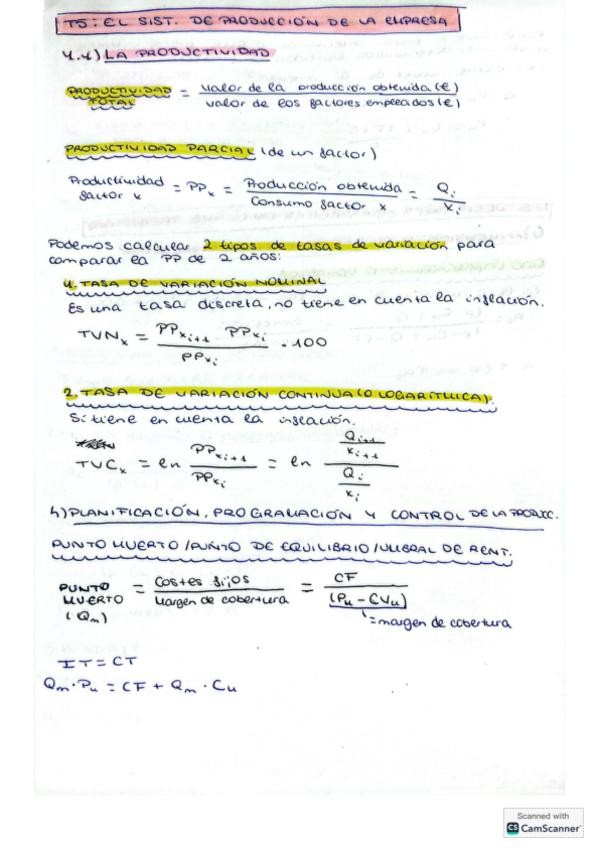 T5: EL SIST. DE PRODUCCIÓN DE LA EMPRESA
4.4) LA PRODUCTIVIDAD
PRODUCTIVIDAD TOTAL = valor de la producción obtenida (€) / valor de los factores empleados (€)
PRODUCTIVIDAD PARCIAL (de un factor)
Productividad factor x = PPx = Producción obtenida / Consumo factor x = Qi / xi
Podemos calcular 2 tipos de tasas de variación para
comparar la PP de 2 años:
1. TASA DE VARIACIÓN NOMINAL
Es una tasa discreta, no tiene en cuenta la inflación.
TVNx = PPxi+1 PPxi / PPxi · 100
2. TASA DE VARIACIÓN CONTINUA (O LOGARÍTMICA).
Sí tiene en cuenta la inflación.
TVCx = ln PPxi+1 / PPxi = ln Qi+1 / xi+1 / Qi / xi
4) PLANIFICACIÓN, PROGRAMACIÓN Y CONTROL DE LA PRODUCC.
PUNTO MUERTO / PUNTO DE EQUILIBRIO / UMBRAL DE RENT.
PUNTO MUERTO (Qm) = Costes fijos / Margen de cobertura = CF / (Pu - CVu)
= margen de cobertura
IT = CT
Qm · Pu = CF + Qm · Cu
Scanned with
CS CamScanner